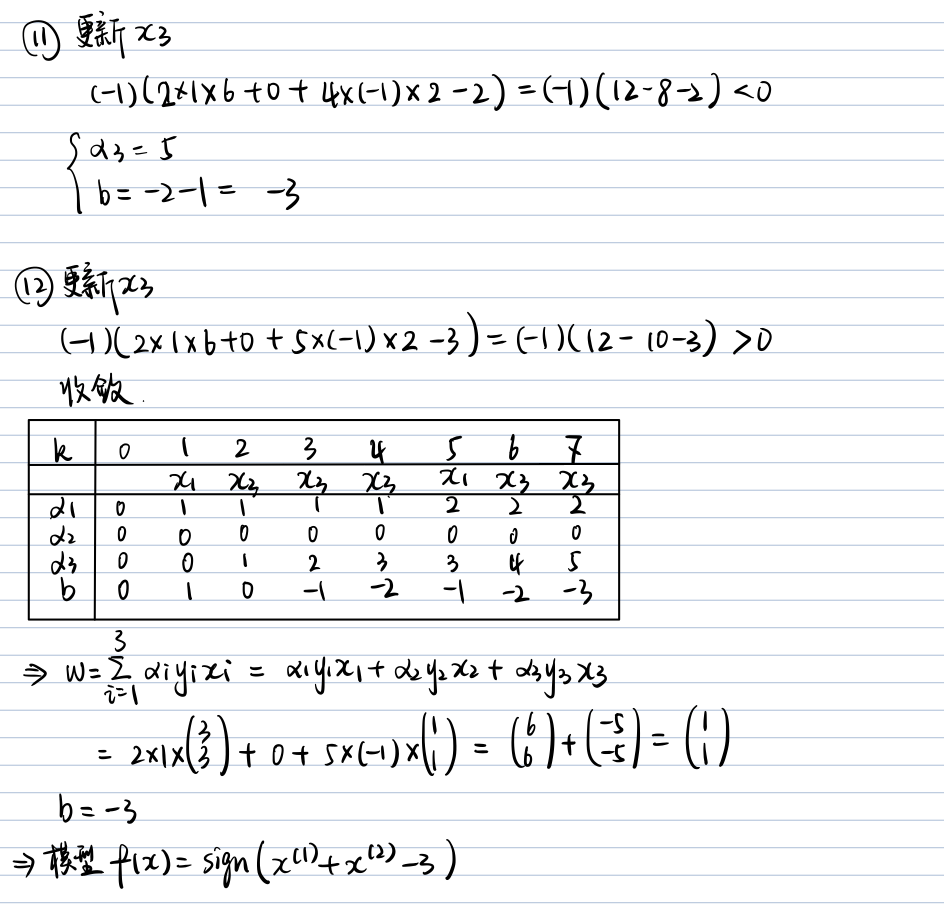 ⑪ 更新 x₃
(-1)(2×1×6+0+4×(-1)×2-2)=(-1)(12-8-2)<0
α₃=5
b=-2-1= -3
⑫ 更新x₃
(-1)(2×1×6+0+5×(-1)×2-3)=(-1)(12-10-3)>0
收敛.
k 0 1 2 3 4 5 6 7
x₁ x₃ x₃ x₃ x₁ x₃ x₃
α₁ 0 1 1 1 1 2 2 2
α₂ 0 0 0 0 0 0 0 0
α₃ 0 0 1 2 3 3 4 5
b 0 1 0 -1 -2 -1 -2 -3
⇒ w=∑_{i=1}^{3} αᵢyᵢxᵢ = α₁y₁x₁+α₂y₂x₂+α₃y₃x₃
= 2×1×(3 3)+0+5×(-1)×(1 1) = (6 6)+(-5 -5)=(1 1)
b=-3
⇒ 模型 f(x)=sign(x⁽¹⁾+x⁽²⁾-3)